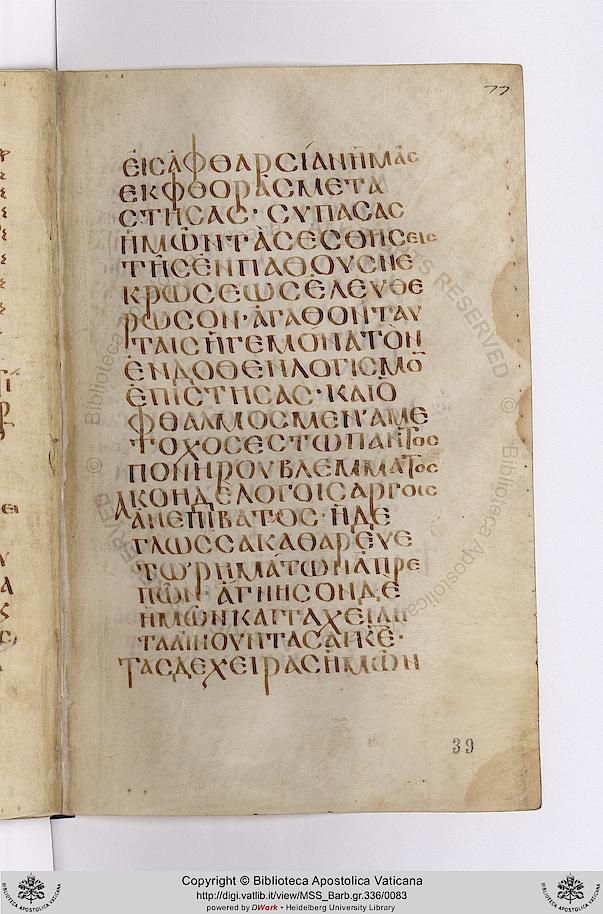 77
ΕΙΣΑΦΘΑΡΣΙΑΝΗΜΑΣ
ΕΚΦΘΟΡΑΣΜΕΤΑ
ΣΤΗΣΑΣ· ΣΥΠΑΣΑΣ
ΗΜΩΝΤΑΣΕΣΘΗΣΕΙΣ
ΤΗΣΕΝΠΑΘΟΥΣΝΕ
ΚΡΩΣΕΩΣΕΛΕΥΘΕ
ΡΩΣΟΝ· ΑΓΑΘΟΝΤΑΥ
ΤΑΙΣΗΓΕΜΟΝΑΤΟΝ
ΕΝΔΟΘΕΝΛΟΓΙΣΜΟ̅
ΕΠΙΣΤΗΣΑΣ· ΚΑΙΟ
ΦΘΑΛΜΟΣΜΕΝΑΜΕ
ΤΟΧΟΣΕΣΤΩΠΑΝΤΟΣ
ΠΟΝΗΡΟΥΒΛΕΜΜΑΤΟΣ
ΑΚΟΗΔΕΛΟΓΟΙΣΑΡΓΟΙΣ
ΑΝΕΠΙΒΑΤΟΣ· ΗΔΕ
ΓΛΩΣΣΑΚΑΘΑΡΕΥΕ
ΤΩΡΗΜΑΤΩΝΑΠΡΕ
ΠΩΝ· ΑΓΝΗΣΟΝΔΕ
ΗΜΩΝ
ΤΑΑΙΝΟΥΝΤΑΣΑΙΚΕ̅·
ΤΑΣΔΕΧΕΙΡΑΣΗΜΩΝ
39
Copyright © Biblioteca Apostolica Vaticana
http://digi.vatlib.it/view/MSS_Barb.gr.336/0083
powered by DWork • Heidelberg University Library